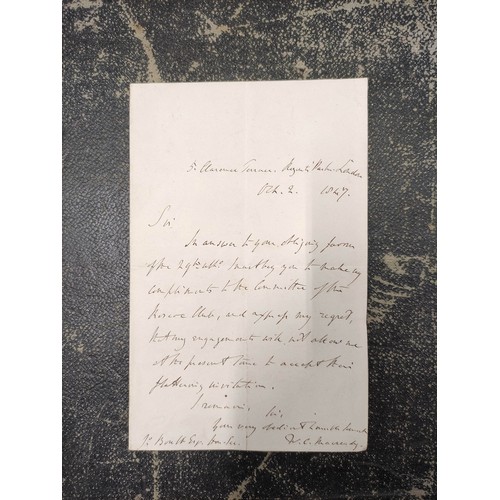 5. Clarence Terrace. Regent's Park. London
Oct. 2. 1847.
Sir
In answer to your obliging favor
of the 29th ulto. I must beg you to make my
compliments to the Committee of the
Roscoe Club, and express my regret,
that my engagements will not allow me
at the present time to accept their
flattering invitation.
I remain, Sir,
Your very obedient humble servant
W. C. Macready.
Esqr. Hon. Sec.